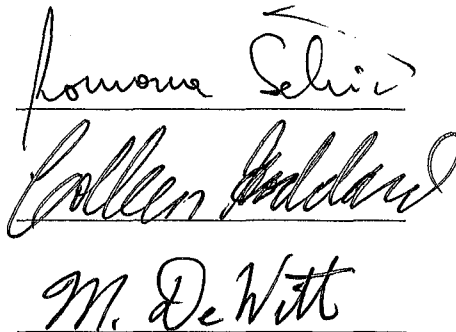 Romana
Colleen Goddard
M. De Witt